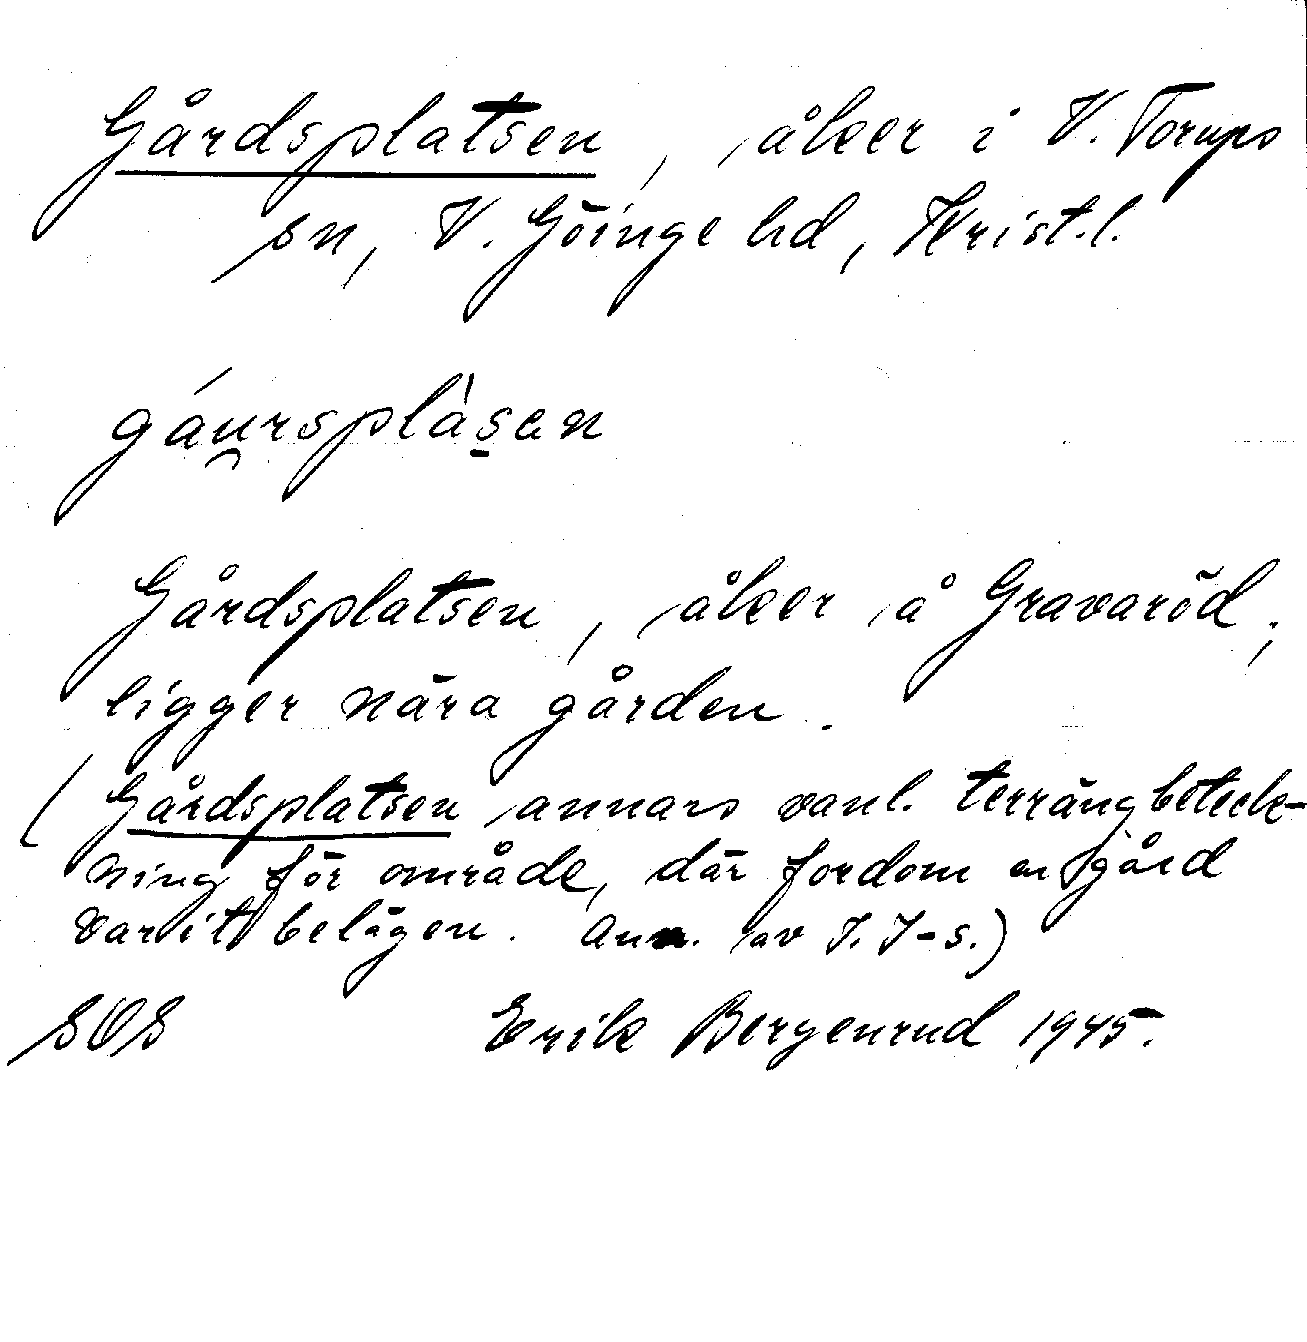 Gårdsplatsen, åker i V. Torups
sn, V. Göinge hd, Krist.l.
gáu̯rsplàs̠en
Gårdsplatsen, åker å Gravaröd;
ligger nära gården.
(Gårdsplatsen annars vanl. terrängbeteck-
ning för område, där fordom en gård
varit belägen. Anm. av I. I-s.)
SOS Erik Bergenrud 1945.